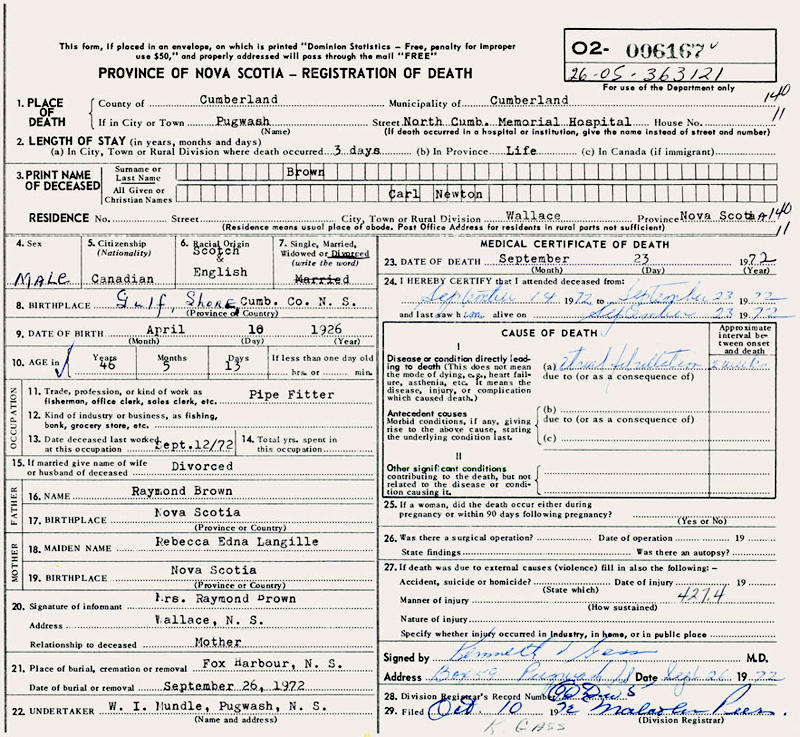 This form, if placed in an envelope, on which is printed "Dominion Statistics — Free, penalty for improper
use $50," and properly addressed will pass through the mail "FREE"
PROVINCE OF NOVA SCOTIA — REGISTRATION OF DEATH
O2- 006167
26-05-363121
For use of the Department only
1. PLACE OF DEATH County of Cumberland Municipality of Cumberland 140
If in City or Town Pugwash Street North Cumb. Memorial Hospital House No. 11
(Name) (If death occurred in a hospital or institution, give the name instead of street and number)
2. LENGTH OF STAY (in years, months and days)
(a) In City, Town or Rural Division where death occurred 3 days (b) In Province Life (c) In Canada (if immigrant)
3. PRINT NAME OF DECEASED Surname or Last Name Brown
All Given or Christian Names Carl Newton
RESIDENCE No. Street City, Town or Rural Division Wallace Province Nova Scotia 140
(Residence means usual place of abode. Post Office Address for residents in rural parts not sufficient) 11
4. Sex MALE
5. Citizenship (Nationality) Canadian
6. Racial Origin Scotch & English
7. Single, Married, Widowed or Divorced (write the word) Married
8. BIRTHPLACE Gulf, Shore Cumb. Co. N. S.
(Province or Country)
9. DATE OF BIRTH April 10 1926
(Month) (Day) (Year)
10. AGE in Years 46 Months 5 Days 13 If less than one day old
hrs. or min.
OCCUPATION
11. Trade, profession, or kind of work as fisherman, office clerk, sales clerk, etc. Pipe Fitter
12. Kind of industry or business, as fishing, bank, grocery store, etc.
13. Date deceased last worked at this occupation Sept.12/72 14. Total yrs. spent in this occupation
15. If married give name of wife or husband of deceased Divorced
FATHER
16. NAME Raymond Brown
17. BIRTHPLACE Nova Scotia
(Province or Country)
MOTHER
18. MAIDEN NAME Rebecca Edna Langille
19. BIRTHPLACE Nova Scotia
(Province or Country)
20. Signature of informant Mrs. Raymond Brown
Address Wallace, N. S.
Relationship to deceased Mother
21. Place of burial, cremation or removal Fox Harbour, N. S.
Date of burial or removal September 26, 1972
22. UNDERTAKER W. I. Mundle, Pugwash, N. S.
(Name and address)
MEDICAL CERTIFICATE OF DEATH
23. DATE OF DEATH September 23 1972
(Month) (Day) (Year)
24. I HEREBY CERTIFY that I attended deceased from:
September 14 1972 to September 23 1972
and last saw him alive on September 23 1972
CAUSE OF DEATH
Approximate interval between onset and death
I
Disease or condition directly leading to death (This does not mean the mode of dying, e.g., heart failure, asthenia, etc. It means the disease, injury, or complication which caused death.)
(a)
due to (or as a consequence of)
Antecedent causes
Morbid conditions, if any, giving rise to the above cause, stating the underlying condition last.
(b)
due to (or as a consequence of)
(c)
II
Other significant conditions
contributing to the death, but not related to the disease or condition causing it.
25. If a woman, did the death occur either during pregnancy or within 90 days following pregnancy?
(Yes or No)
26. Was there a surgical operation? Date of operation 19
State findings Was there an autopsy?
27. If death was due to external causes (violence) fill in also the following:—
Accident, suicide or homicide? Date of injury 19
(State which)
Manner of injury 427.4
(How sustained)
Nature of injury
Specify whether injury occurred in industry, in home, or in public place
Signed by Kenneth Gass M.D.
Address Box 59 Pugwash Date Sept 26 1972
28. Division Registrar's Record Number
29. Filed Oct. 10 1972 Malcolm
(Division Registrar)
K. GASS